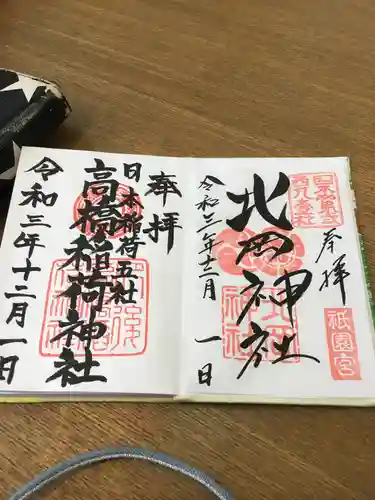 奉拝
北岡神社
令和三年十二月一日
祇園宮
北岡神社
奉拝
日本稲荷五社
高橋稲荷神社
令和三年十二月一日